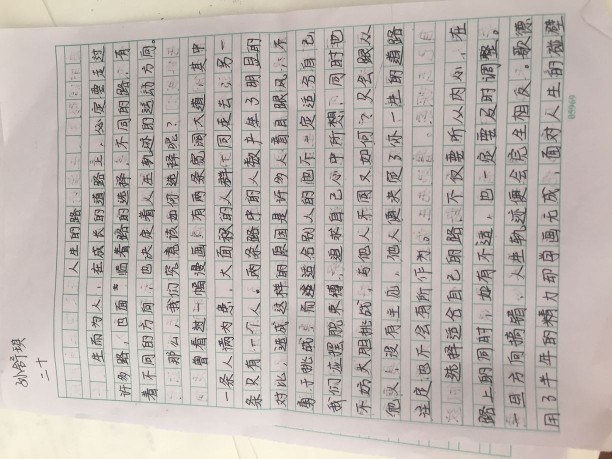 孙舒琪
二十
人生的路
生而为人，在成长的道路上，必定要走过
许多路，也面临着路的选择，不同的路，有
着不同的方向，也决定着人生轨迹的运动方向。
那么，我们究竟该如何选择呢？
曾看过一幅漫画，有两条宽阔大道，其中
一条人满为患，大面积的人群一同走去；另一
条只有一个人。两条路中的人数产生了明显的
对比，造成这样的原因是许多人盲目跟风，不
勇于挑战，而适合别人的他不一定适合自己
我们应摆脱束缚，追求自己心中所想，同时也
不妨大胆挑战，与他人不同又如何？只会跟从
他人，没有主见，他人便决定了你一生的道路
注定也不会有所作为。
选择适合自己的路，不仅要听从内心，在
路上的同时，如有不适，也一定要及时调整。
一旦方向搞错，人生轨迹便会完全相反。歌德
用了半年的精力却单画无成，面对人生的
05969